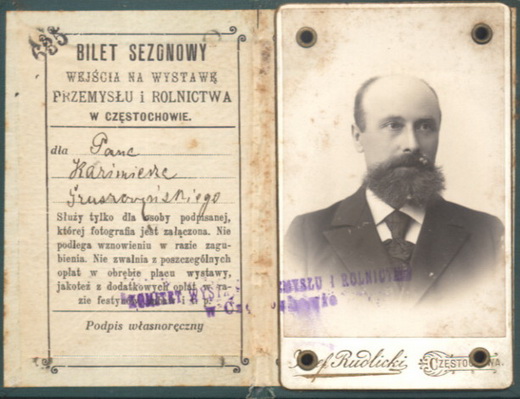 585
BILET SEZONOWY
WEJŚCIA NA WYSTAWĘ
PRZEMYSŁU i ROLNICTWA
W CZĘSTOCHOWIE.
dla Pana
Kazimierza
Gruszczyńskiego
Służy tylko dla osoby podpisanej,
której fotografia jest załączona. Nie
podlega wznowieniu w razie zagu-
bienia. Nie zwalnia z poszczególnych
opłat w obrębie placu wystawy,
jakoteż z dodatkowych opłat w ra-
zie
Podpis własnoręczny
KOMITET WYSTAWY PRZEMYSŁU i ROLNICTWA
w Częstochowie
Józef Rudlicki CZĘSTOCHOWA.